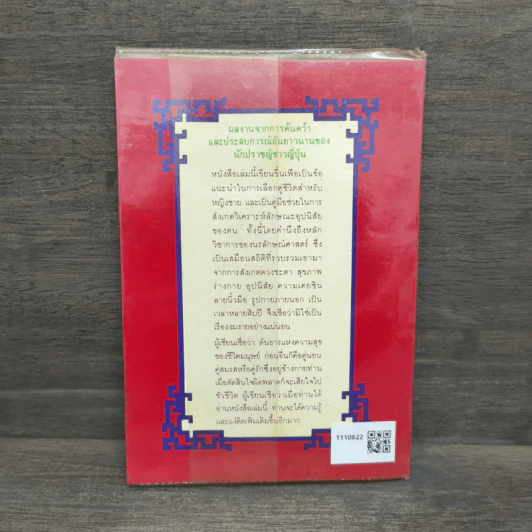 ผลงานจากการค้นคว้า
และประสบการณ์อันยาวนานของ
นักปราชญ์ชาวญี่ปุ่น
หนังสือเล่มนี้เขียนขึ้นเพื่อเป็นข้อ
แนะนำในการเลือกคู่ชีวิตสำหรับ
หญิงชาย และเป็นคู่มือช่วยในการ
สังเกตวิเคราะห์ลักษณะอุปนิสัย
ของคน ทั้งนี้โดยคำนึงถึงหลัก
วิชาการของนรลักษณ์ศาสตร์ ซึ่ง
เป็นเสมือนสถิติที่รวบรวมเอามา
จากการสังเกตดวงชะตา สุขภาพ
ร่างกาย อุปนิสัย ความเคยชิน
ลายนิ้วมือ รูปกายภายนอก เป็น
เวลาหลายสิบปี จึงเชื่อว่ามิใช่เป็น
เรื่องงมงายอย่างแน่นอน
ผู้เขียนเชื่อว่า ต้นธารแห่งความสุข
ของชีวิตมนุษย์ ก่อนอื่นก็คือคู่นอน
คู่สมรสหรือคู่รักซึ่งอยู่ข้างกายท่าน
เมื่อตัดสินใจผิดพลาดก็จะเสียใจไป
ชั่วชีวิต ผู้เขียนเชื่อว่าเมื่อท่านได้
อ่านหนังสือเล่มนี้ ท่านจะได้ความรู้
และแง่คิดเพิ่มเติมขึ้นอีกมาก
1110822